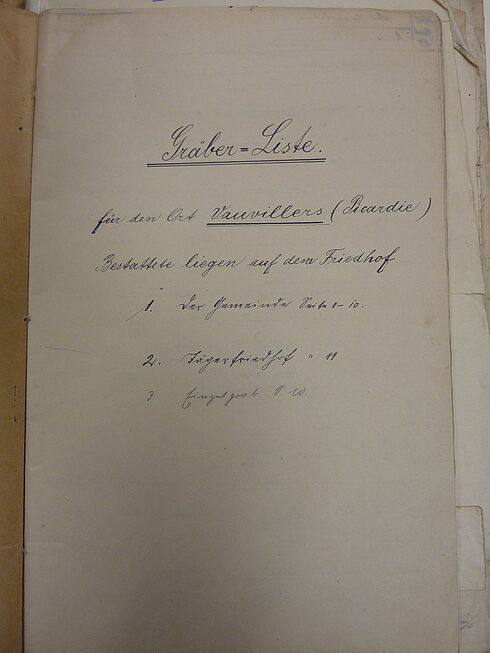 Gräber = Liste.
für den Ort Vauvillers (Picardie)
Bestattete liegen auf dem Friedhof
1. Der Gemeinde Seite 1-10.
2. Jägerfriedhof " 11
3 Einzelgrab S. W.